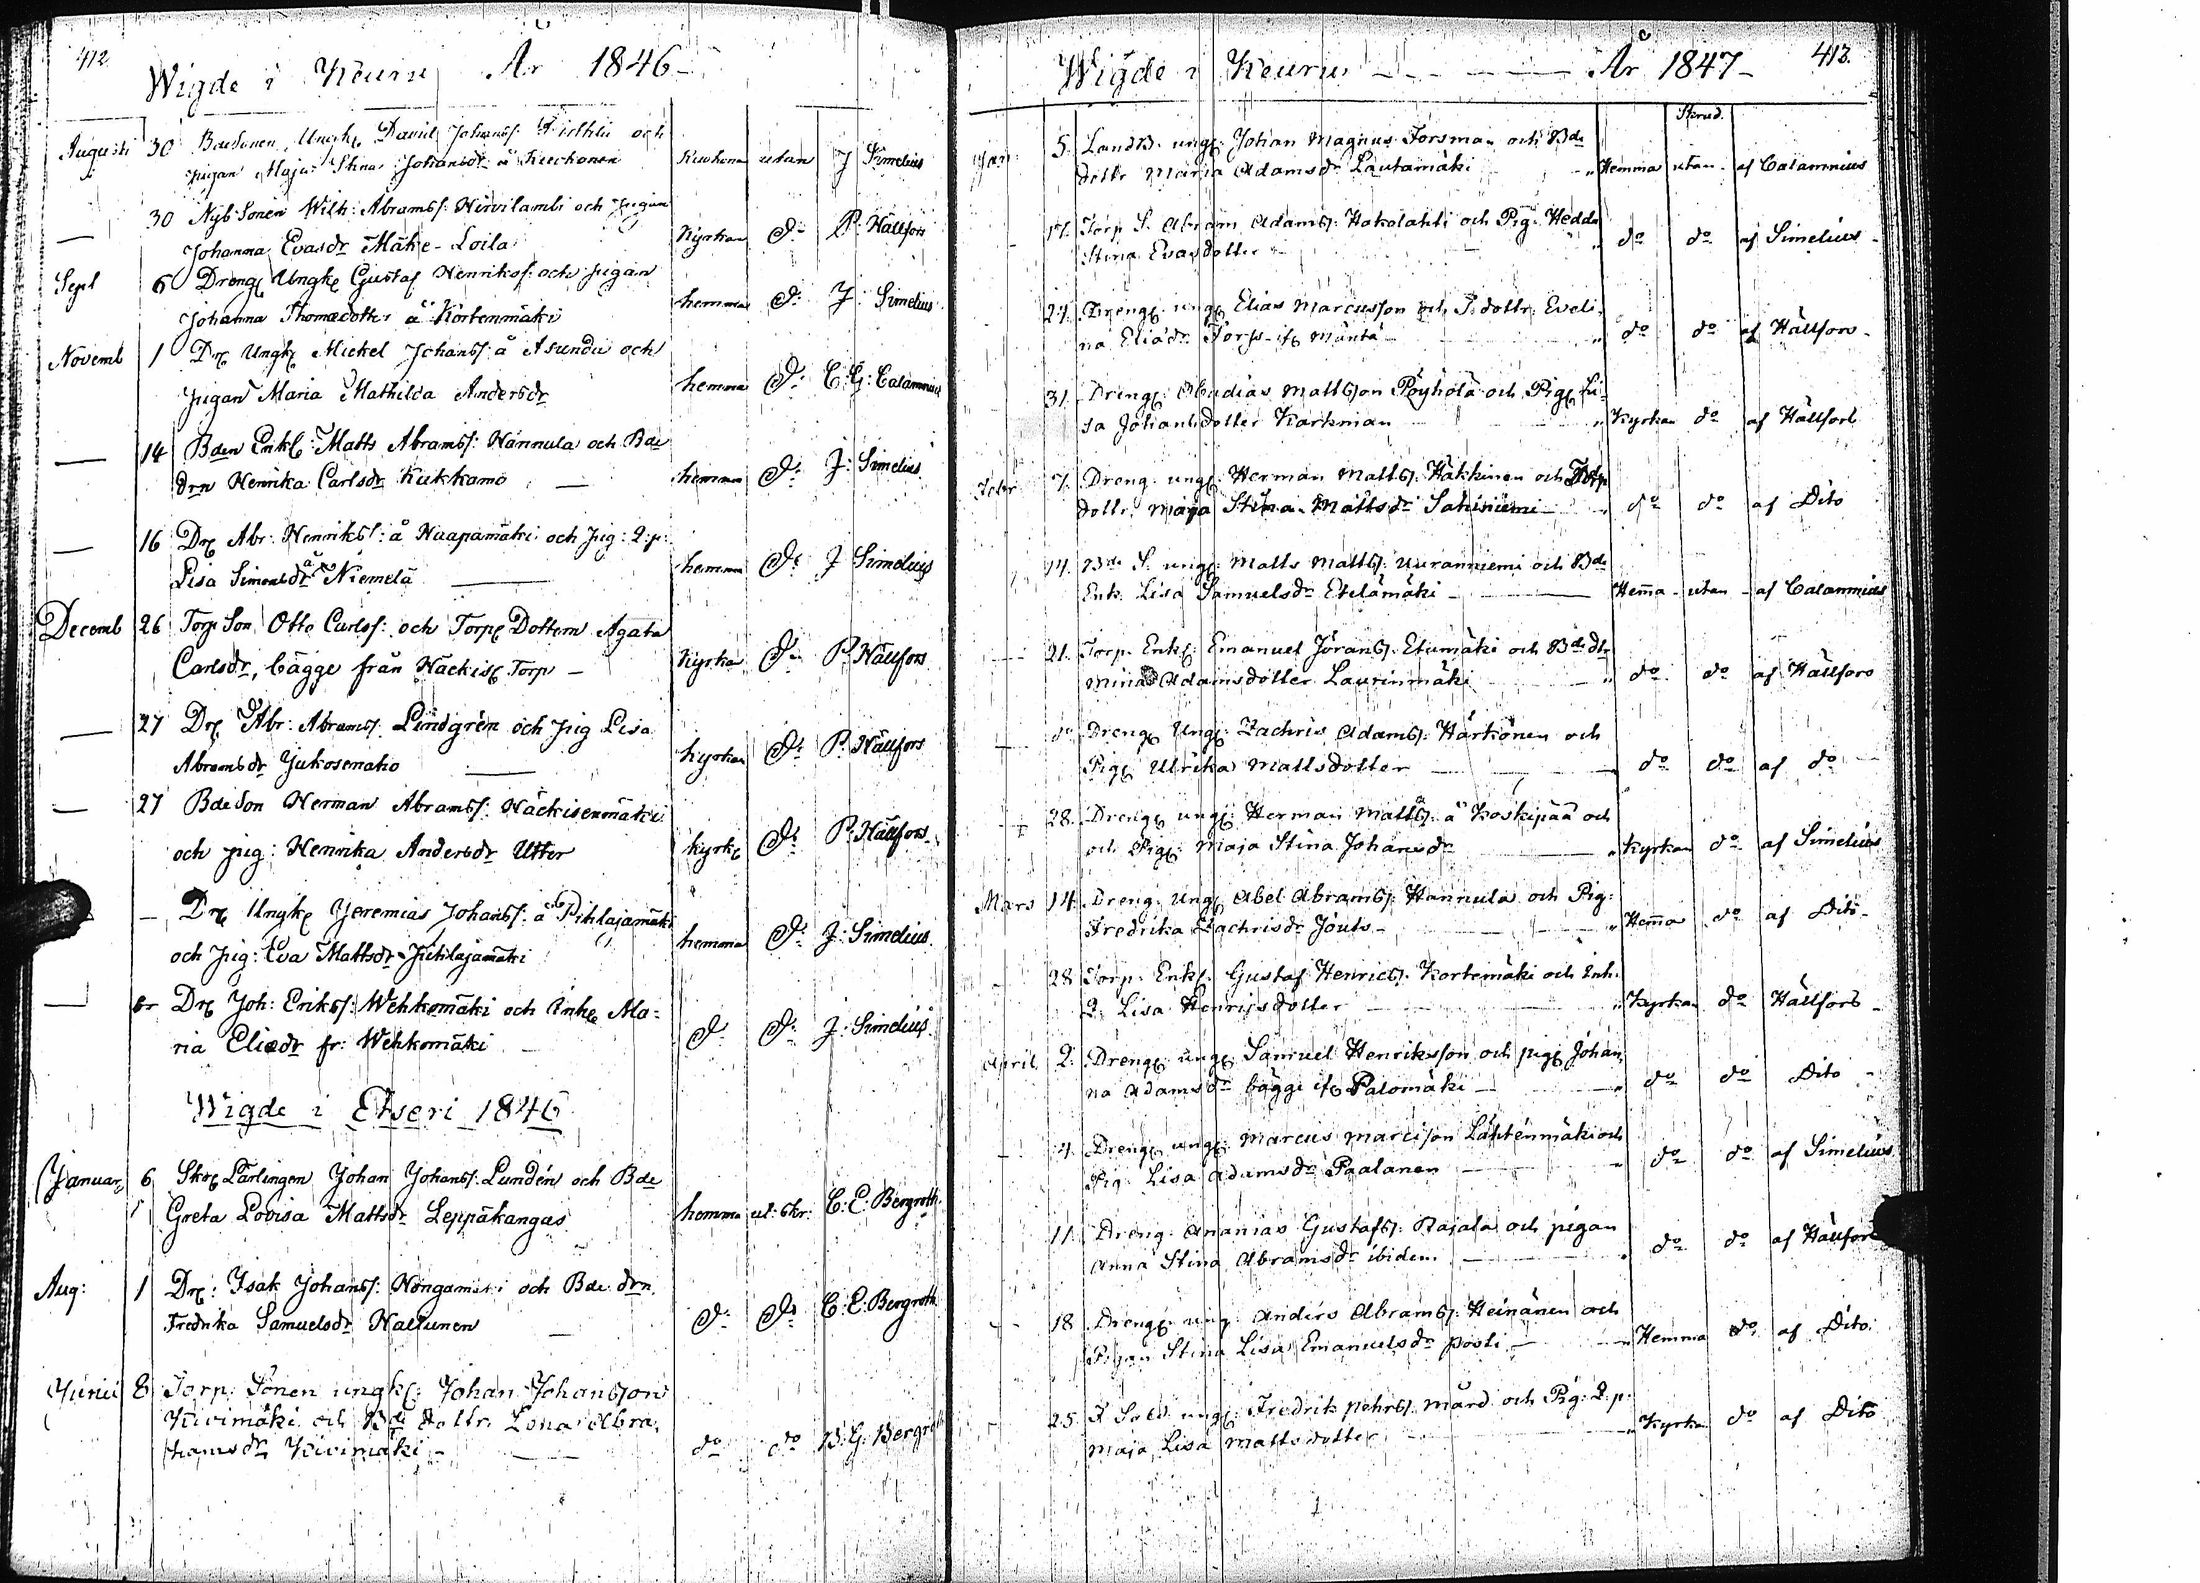 412
Wigde i Keuru År 1846
Augusti 30 Bondsonen Ungk. David Johanss:
pigan Maja Stina Johansdr å Kuckonen utan J Simelius
30 Nyb Sonen Wilh: Abramss: Hirvilambi och pigan
Johanna Evasdr Mäke-Loila Kyrkan do P. Hällfors
Sept 6 Dreng Ungk Gustaf Henrikss: och pigan
Johanna Thomædotter å Kortenmäki hemma do J. Simelius
Novemb 1 Drg Ungk Mickel Johanss: å Asunda och
pigan Maria Mathilda Andersdr hemma do C: G: Calamnius
14 Bden Enkl: Matts Abramss: Hannula och Bde
drn Henrika Carlsdr Kukkamo hemma do J: Simelius
16 Drg Abr: Henrikss: å Haapamäki och pig: Q:p:
Lisa Simonsdr å Niemelä hemma do J Simelius
Decemb 26 Torp Son Otto Carlss: och Torp Dottern Agata
Carlsdr, bägge från Häckis Torp Kyrka do P. Hällfors
27 Drg Abr: Abramss: Lindgrén och pig Lisa
Abramsdr Jukosenaho kyrkan do P. Hällfors
27 Bde Son Herman Abramss: Häckisenmäki
och pig: Henrika Andersdr Utter kyrk do P. Hällfors
Drg Ungk Jeremias Johanss: å Pihlajamäki
och pig: Eva Mattsdr Pihlajamäki hemma do J: Simelius
Drg Joh: Erikss: Wehkomäki och Enke Ma=
ria Eliædr fr: Wehkomäki do do J: Simelius
Wigde i Etseri 1846
Januar 6 Skr Lärlingen Johan Johanss: Lundén och Bde
Greta Lovisa Mattsdr Leppäkangas hemma ut: skr: C: E: Bergroth
Aug: 1 Drg: Isak Johanss: och Bde drn
Fredrika Samuelsdr do do C: E: Bergroth
Junii 8 Torp: Sonen ungk: Johan Johansson
Kivimäki och Bde dottr. Lena Abra,
hamsdr Kivimäki do do
413.
Wigde i Keuru År 1847
Skrud.
Jan: 5. LandtB. ungk: Johan Magnus Forsman och Bde
dottr Maria Adamsdr Lautamäki Hemma utan af Calamnius
17. Torp S. Abram Adamss: Hakolahti och Pig: Hedda
Stina Evasdotter do do af Simelius
24. Dreng. ungk Elias Marcusson och T. dottr. Eveli,
na Eliædr Torss. ifr Mäntä do do af Hällfors
31. Dreng: Obadias Mattsson Pöyhölä och Pig Li-
sa Johansdotter Karkman Kyrkan do af Hällfors
Febr 7. Dreng. ungk: Herman Mattss: Häkkinen och Torp
dottr. Maja Stina Mattsdr Sahiniemi do do af Dito
14. Bde S. ungk: Matts Mattss: Uuranniemi och Bde
Enk. Lisa Samuelsdr Etelämäki Hemma utan af Calamnius
21. Torp. Enkl: Emanuel Jöranss: och Bde dtr
Mina Adamsdotter Laurinmäki do do af Hällfors
do Dreng Ungk: Zachris Adamss: Härkönen och
Pig Ulrika Mattsdotter do do af do
28. Dreng ungk: Herman Mattss: å Koskipää och
och Pig: Maja Stina Johansdr Kyrkan do af Simelius
Mars 14. Dreng. Ungk Abel Abramss: Hannula och Pig:
Fredrika Zachrisdr Jouts Hemma do af Dito
28. Torp. Enkl: Gustaf Henricss: Kortemäki och Enk.
Q. Lisa Henriksdotter Kyrkan do Hällfors
April 2. Dreng: ungk: Samuel Henriksson och pig Johan,
na Adamsdr bägge ifr Palomäki do do Dito
4. Dreng ungk: Marcus Marcisson och
Pig. Lisa Adamsdr Paalanen do do af Simelius
11. Dreng. Ananias Gustafss: Rajala och pigan
Anna Stina Abramsdr ibidem do do af Hällfors
18 Dreng: ung: Anders Abramss: Heinänen och
Pigan Stina Lisa Emanuelsdr Posti Hemma do af Dito.
25. ungk: Fredrik Pehrss: Mård och Pig: Q. p:
Maja Lisa Mattsdotter Kyrkan do af Dito